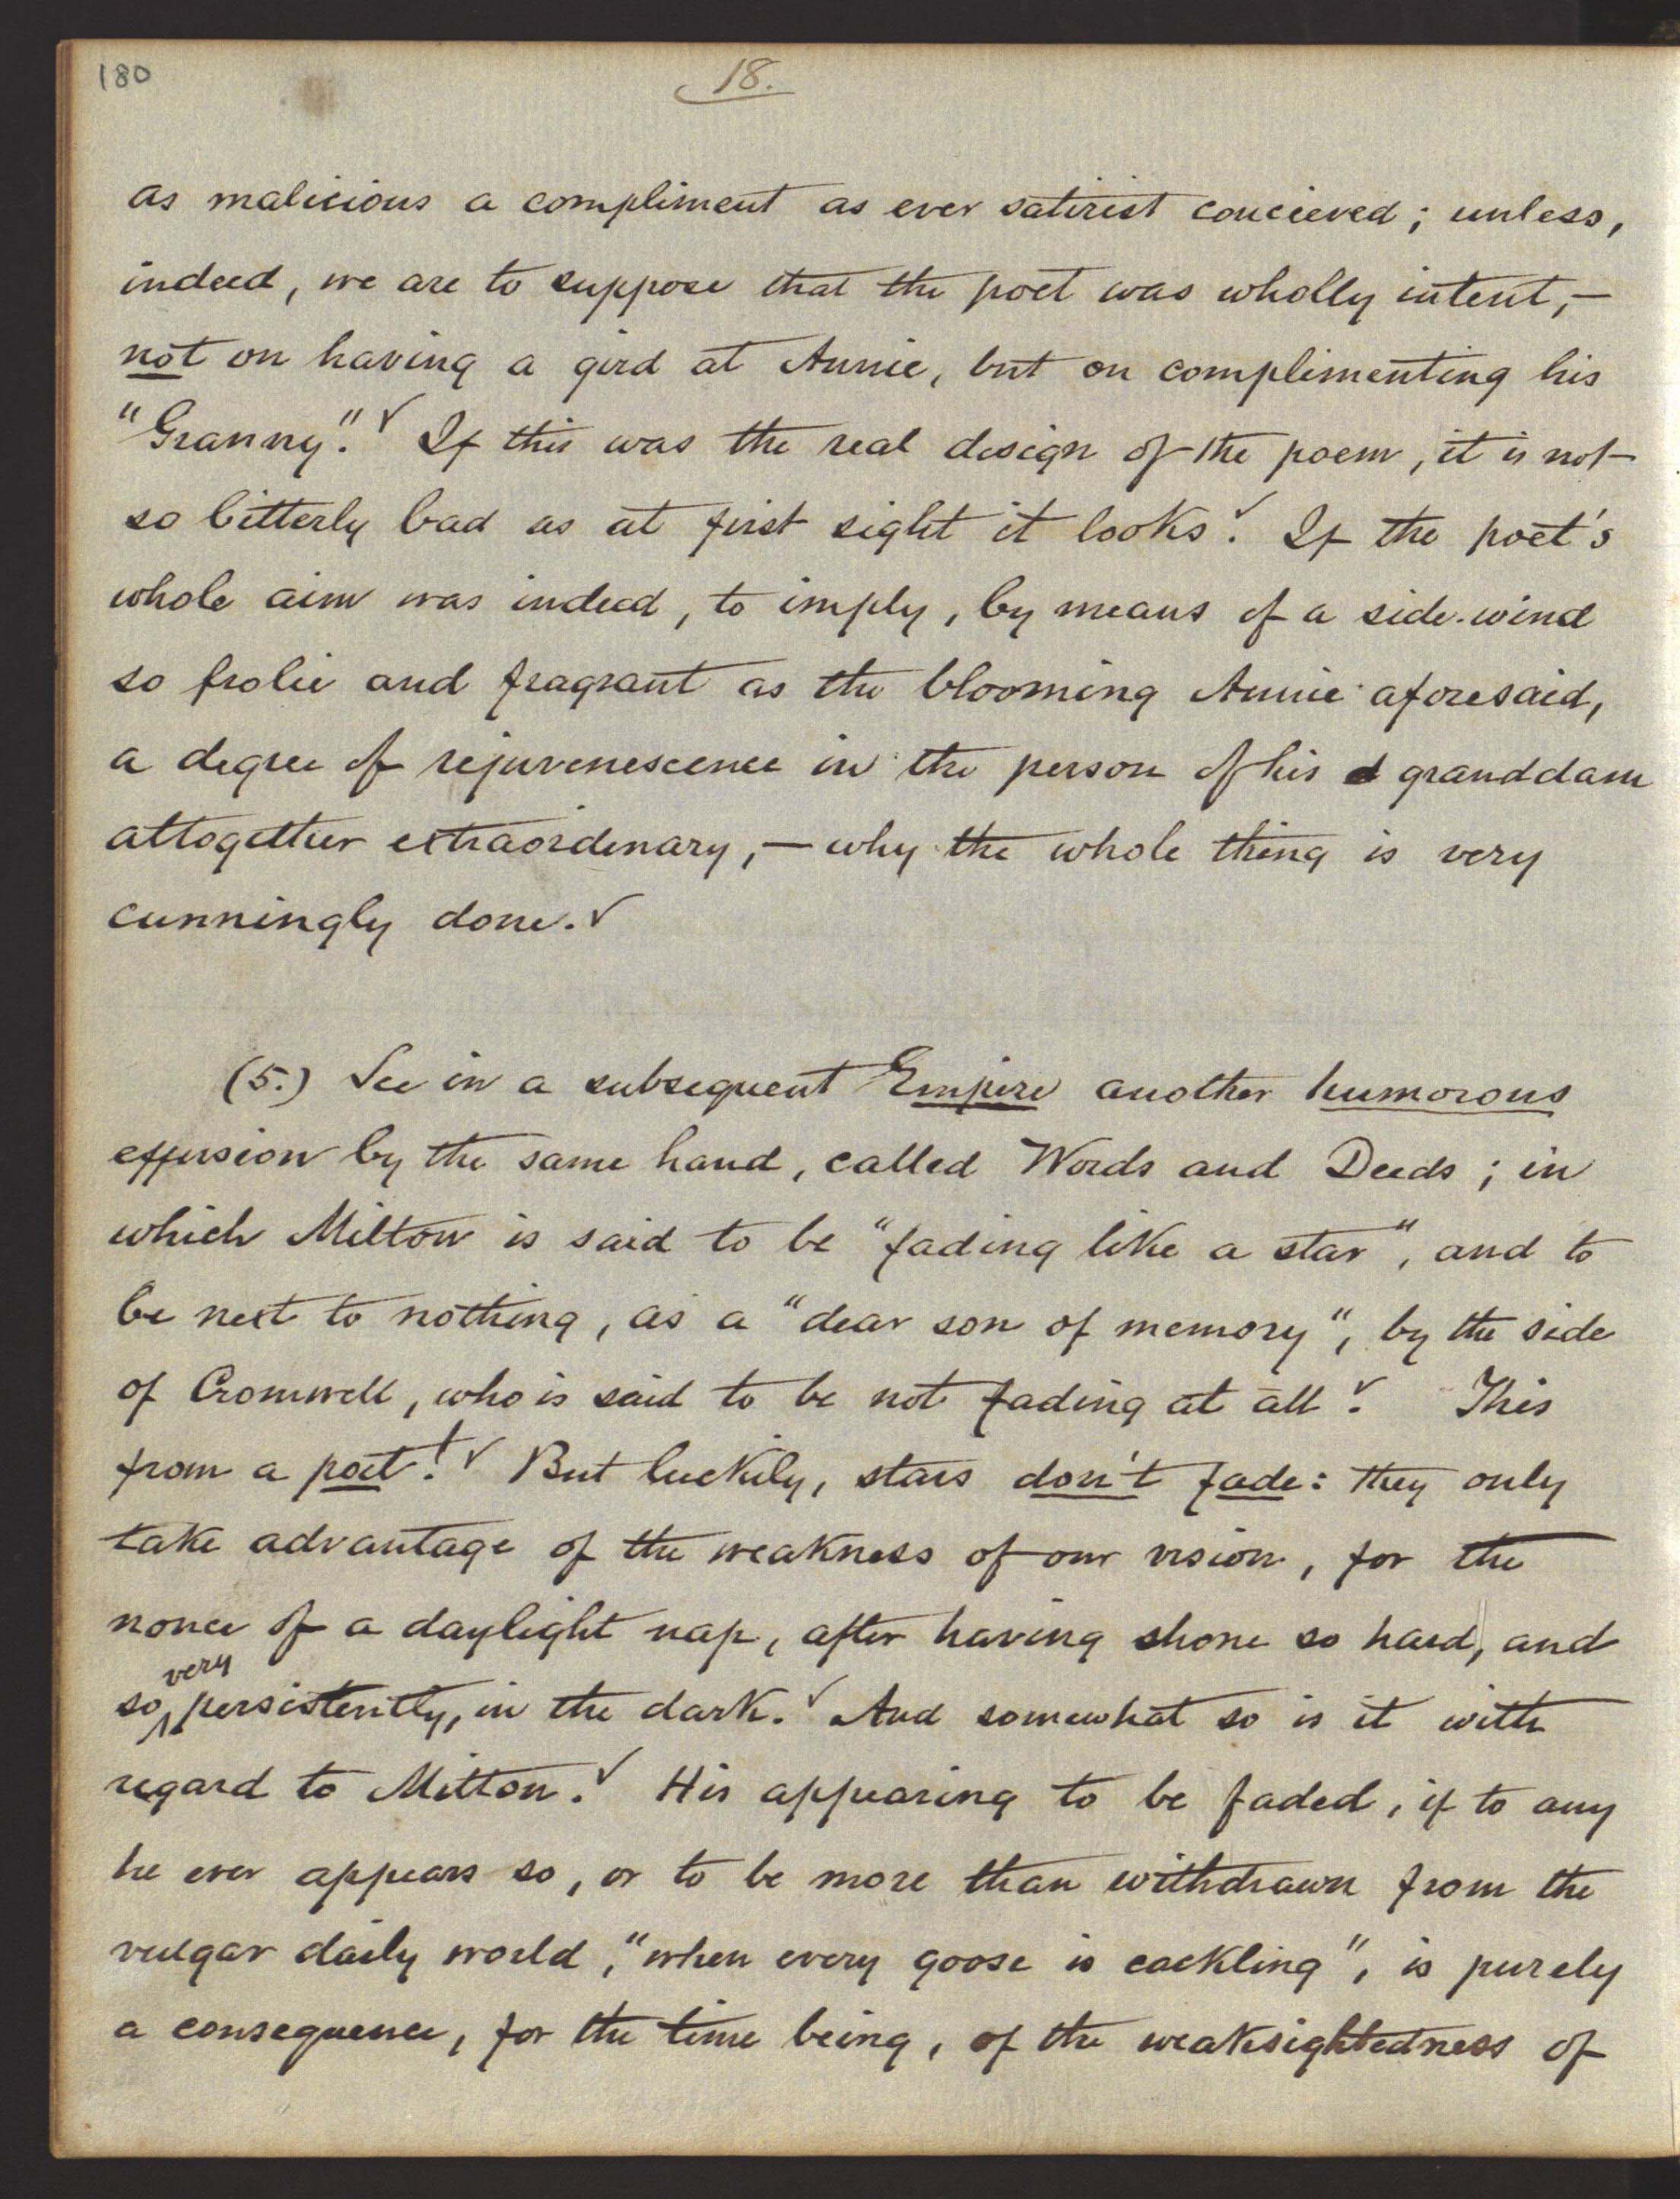 180
18.
as malicious a compliment as ever satirist concieved; unless,
indeed, we are to suppose that the poet was wholly intent,—
not on having a gird at Annie, but on complimenting his
"Granny". If this was the real design of the poem, it is not
so bitterly bad as at first sight it looks. If the poet's
whole aim was indeed, to imply, by means of a side-wind
so frolic and fragrant as the blooming Annie aforesaid,
a degree of rejuvenescence in the person of his granddam
altogether extraordinary,—why the whole thing is very
cunningly done.
(5.) See in a subsequent Empire another humorous
effusion by the same hand, called Words and Deeds; in
which Milton is said to be "fading like a star", and to
be next to nothing, as a "dear son of memory", by the side
of Cromwell, who is said to be not fading at all. This
from a poet! But luckily, stars don't fade: they only
take advantage of the weakness of our vision, for the
nonce of a daylight nap, after having shone so hard, and
so very persistently, in the dark. And somewhat so is it with
regard to Milton. His appearing to be faded, if to any
he ever appears so, or to be more than withdrawn from the
vulgar daily world, "when every goose is cackling", is purely
a consequence, for the time being, of the weaksightedness of